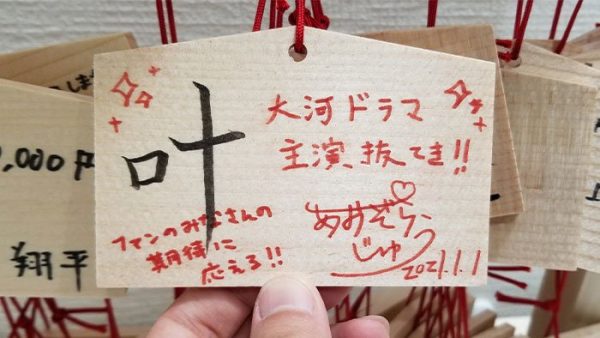 叶
大河ドラマ
主演、抜てき!!
ファンのみなさんの
期待に
応える!!
あおぞら
じゅ
2021.1.1
0,000円
翔平